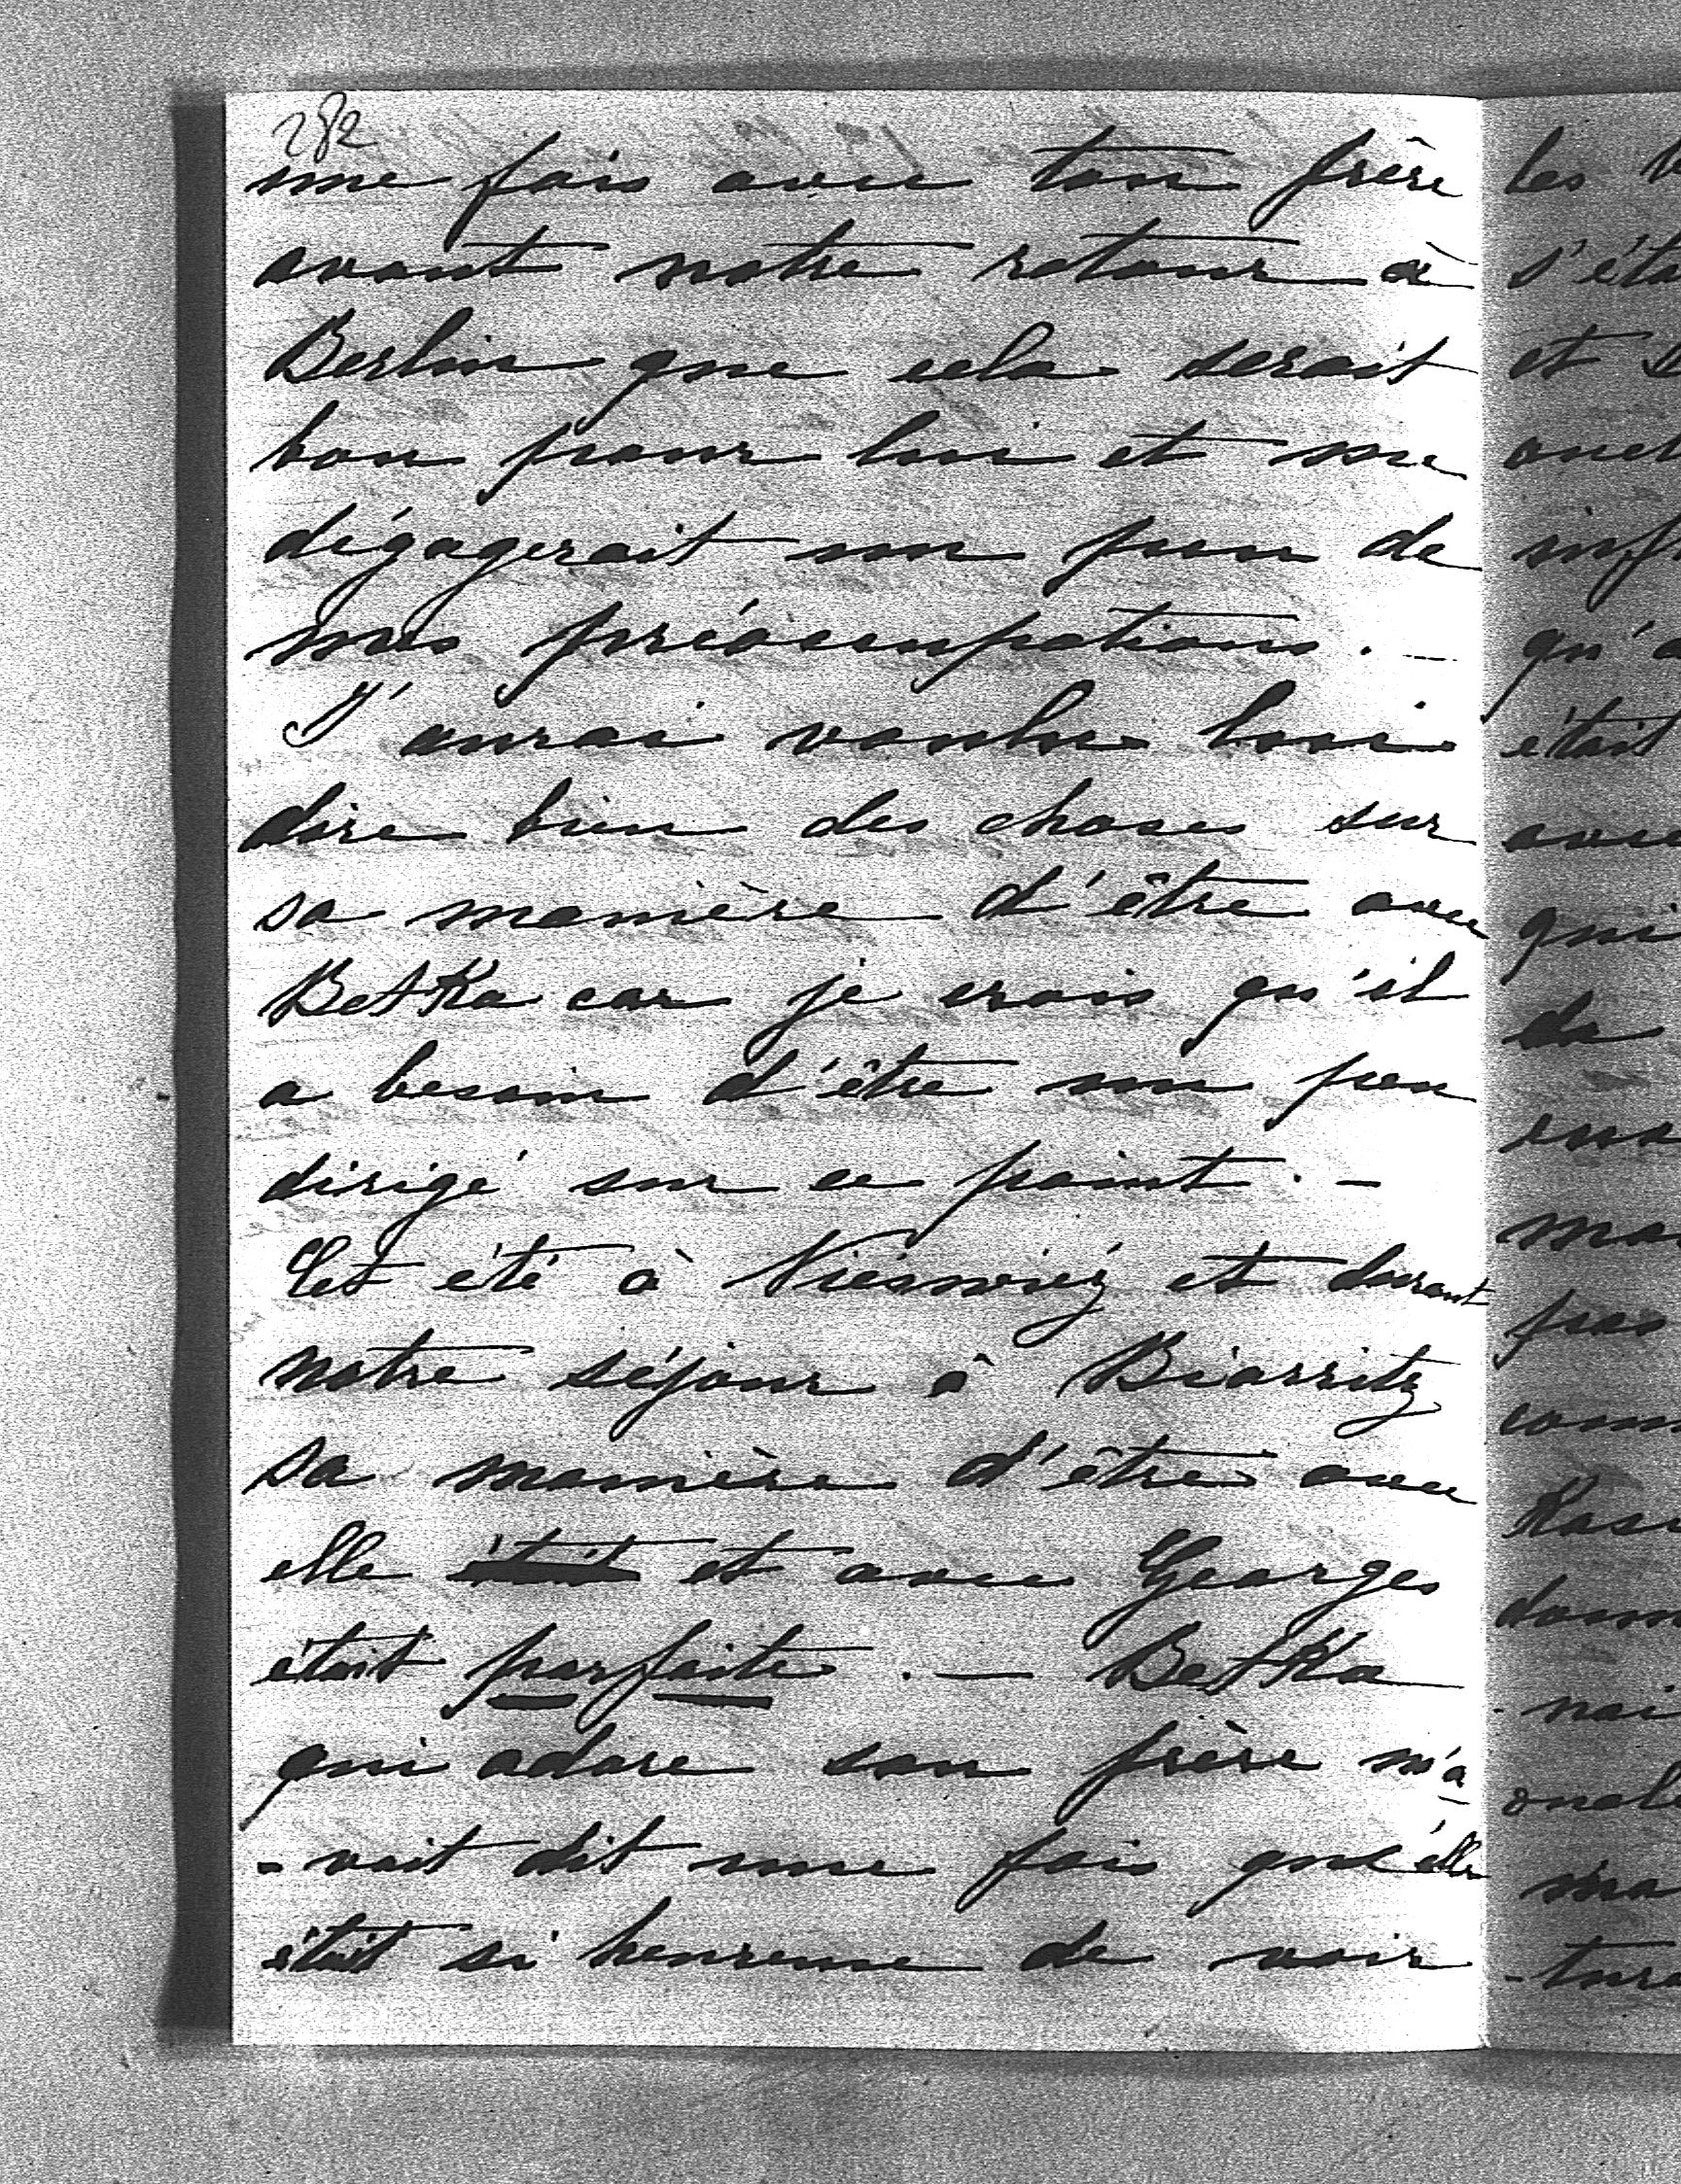 282
une fois avec ton frère
avant notre retour à
Berlin que cela serait
bon pour lui et me
dégagerait un peu de
mes préoccupations. -
J'aurai voulu lui
dire bien des choses sur
sa manière d'être avec
Betka car je crois qu'il
a besoin d'être un peu
dirigé sur ce point. -
Cet été à Nieswiez et durant
notre séjour à Biarritz
sa manière d'être avec
elle était et avec Georges
était parfaite. - Betka
qui adore son frère m'a
- vait dit une fois qu'elle
était si heureuse de voir
les
s'éta
et
oncl
qu'a
était
avec
qui
de
ma
pas
com
donn
- nai
oncle
ma
- ture